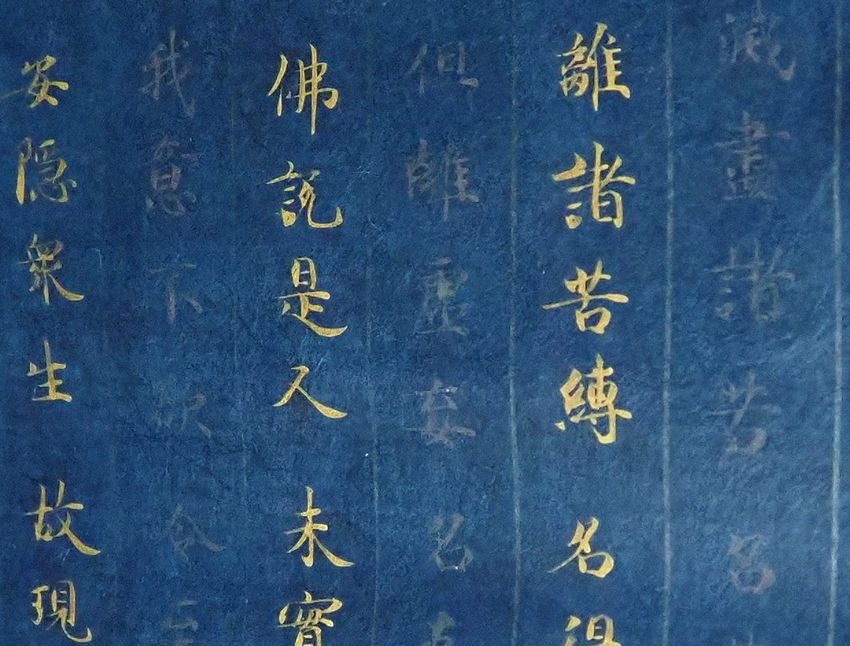 滅盡諸苦 名
離諸苦縛 名得
但離虛妄 名
佛說是人 未實
我意不欲 令至
安隱衆生 故現